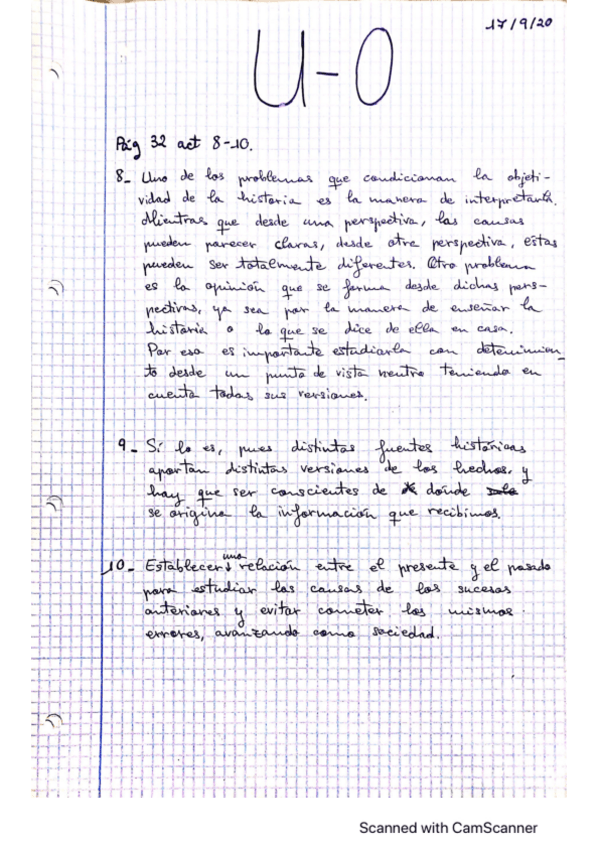 17/9/20
U-0
Pág 32 act 8-10.
8_ Uno de los problemas que condicionan la objeti-
vidad de la historia es la manera de interpretarla.
Mientras que desde una perspectiva, las causas
pueden parecer claras, desde otra perspectiva, estas
pueden ser totalmente diferentes. Otro problema
es la opinión que se forma desde dichas pers-
pectivas, ya sea por la manera de enseñar la
historia o lo que se dice de ella en casa.
Por eso es importante estudiarla con detenimien_
to desde un punto de vista neutro teniendo en
cuenta todas sus versiones.
9_ Sí lo es, pues distintas fuentes históricas
aportan distintas versiones de los hechos, y
hay que ser conscientes de donde
se origina la información que recibimos.
10_ Establecer una relación entre el presente y el pasado
para estudiar las causas de los sucesos
anteriores y evitar cometer los mismos
errores, avanzando como sociedad.
Scanned with CamScanner